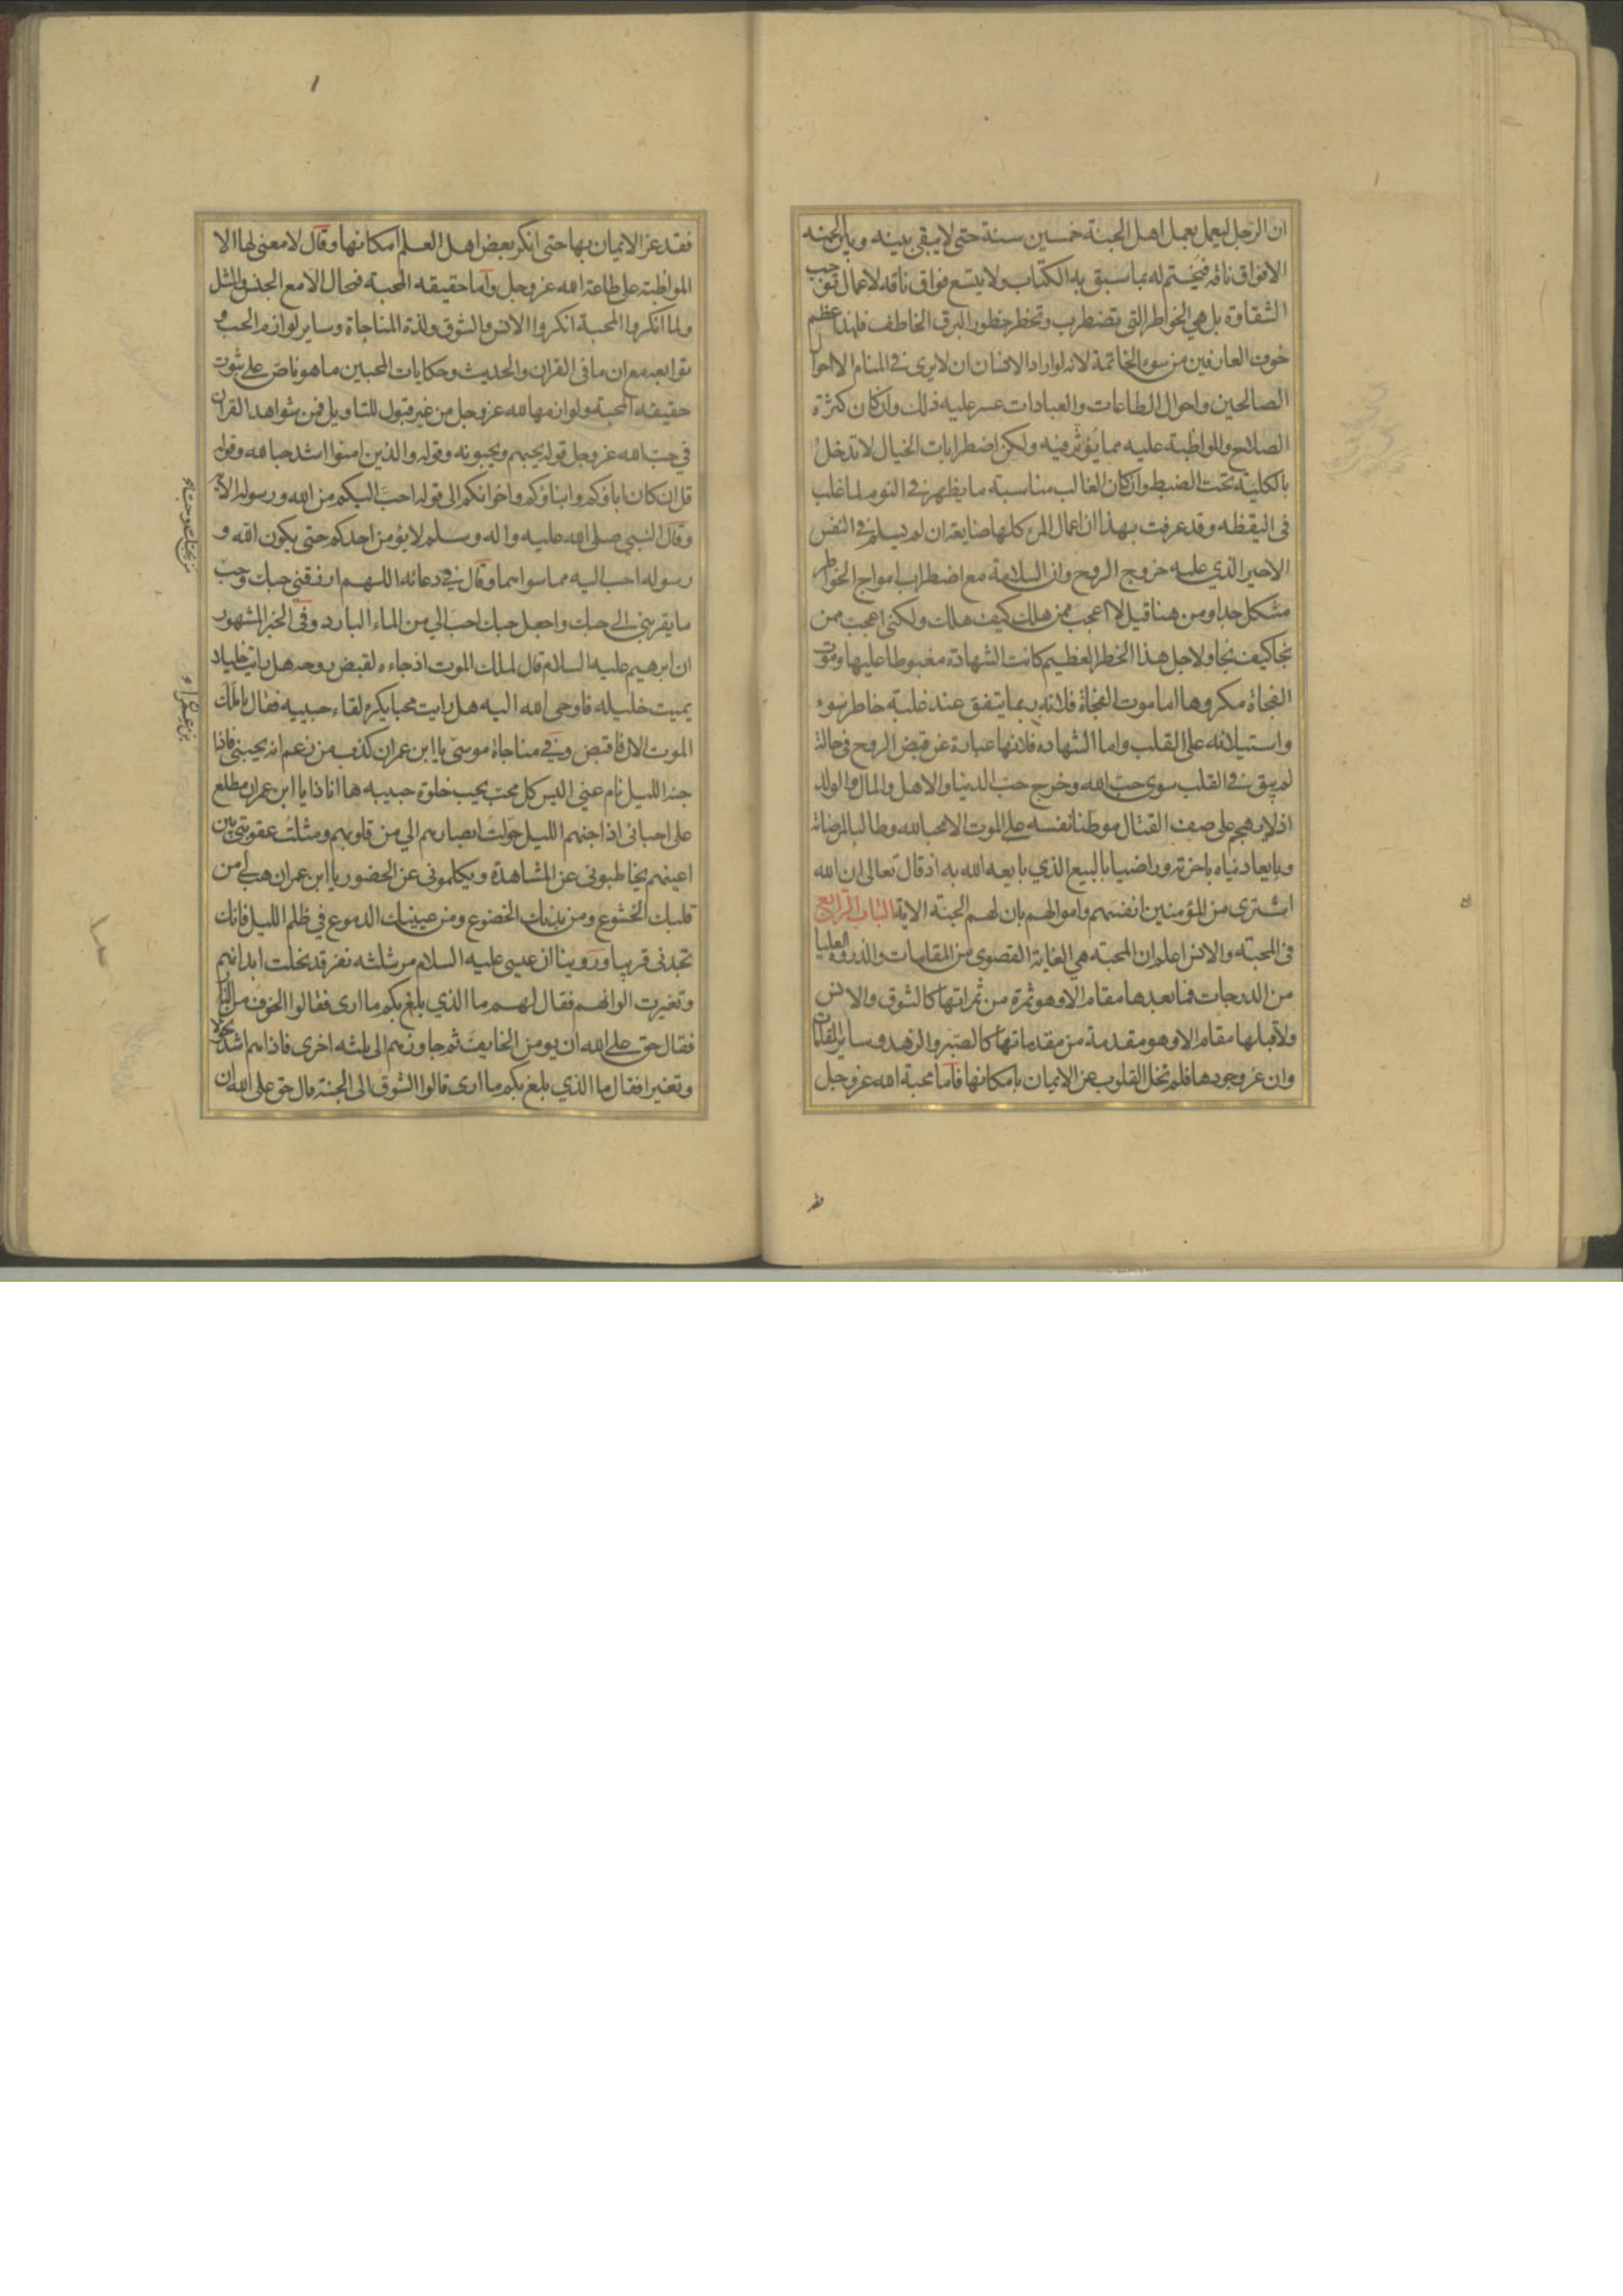 ان الرجل ليعمل بعمل اهل الجنة خمسين سنة حتى لا يبقى بينه وبين الجنة
الا فواق ناقة فيختم له بما سبق به الكتاب ولا يتسع فواق ناقه لاعمال توجب
الشقاوة بل هي الخواطر التي تضطرب وتخطر خطور البرق الخاطف فلهذا عظم
خوف العارفين من سوء الخاتمة لانه لو اراد الانسان ان لا يرى في المنام الا احوال
الصالحين واحوال الطاعات والعبادات عسر عليه ذلك وان كان كثرة
الصلاح والمواظبة عليه مما يؤثر فيه ولكن اضطرابات الخيال لا تدخل
بالكلية تحت الضبط وان كان الغالب مناسبة ما يظهر في النوم لما غلب
في اليقظه وقد عرفت بهذا ان اعمال المرء كلها ضايعة ان لم يسلم في النفس
الاخير الذي عليه خروج الروح وان السلامة مع اضطراب امواج الخواطر
مشكل جدا ومن هنا قيل لا اعجب ممن هلك كيف هلك ولكني اعجب ممن
نجا كيف نجا ولاجل هذا الخطر العظيم كانت الشهادة مغبوطا عليها وموت
الفجاة مكروها اما موت الفجاة فلانه ربما يتفق عند غلبة خاطر سوء
واستيلائه على القلب واما الشهاده فلانها عبارة عن قبض الروح في حالة
لم يبق في القلب سوى حب الله وخرج حب الدنيا والاهل والمال والولد
اذ لا يهجم على صف القتال موطنا نفسه على الموت الا محبا لله وطالبا لمرضاته
وبايعا دنياه باخرته وراضيا بالبيع الذي بايعه الله به اذ قال تعالى ان الله
اشترى من المؤمنين انفسهم واموالهم بان لهم الجنة الاية الباب الرابع
في المحبة والانس اعلم ان المحبة هي الغاية القصوى من المقامات والذروه العليا
من الدرجات فما بعدها مقام الا وهو ثمرة من ثمراتها كالشوق والانس
ولا قبلها مقام الا وهو مقدمة من مقدماتها كالصبر والزهد وسائر المقامات
وان عز وجودها فلم تخل القلوب عن الايمان بامكانها فاما محبة الله عز وجل
فقد عز الايمان بها حتى انكر بعض اهل العلم امكانها وقال لا معنى لها الا
المواظبة على طاعة الله عز وجل واما حقيقه المحبة فمحال الا مع الجنس والمثل
ولما انكروا المحبة انكروا الانس والشوق ولذة المناجاة وساير لوازم الحب و
توابعه مع ان ما في القران والحديث وحكايات المحبين ما هو ناص على ثبوت
حقيقه المحبة ولوازمها لله عز وجل من غير قبول للتاويل فمن شواهد القران
في حب الله عز وجل قوله يحبهم ويحبونه وقوله والذين امنوا اشد حبا لله وقوله
قل ان كان اباؤكم وابناؤكم واخوانكم الى قوله احب اليكم من الله ورسوله الاية
وقال النبي صلى الله عليه واله وسلم لا يؤمن احدكم حتى يكون الله و
رسوله احب اليه مما سواهما وقال في دعائه اللهم ارزقني حبك وحب
ما يقربني الى حبك واجعل حبك احب الي من الماء البارد وفي الخبر المشهور
ان ابرهيم عليه السلام قال لملك الموت اذ جاءه لقبض روحه هل رايت خليلا
يميت خليله فاوحى الله اليه هل رايت محبا يكره لقاء حبيبه فقال يا ملك
الموت الان فاقبض وفي مناجاة موسى يا ابن عمران كذب من زعم انه يحبني فاذا
جنه الليل نام عني اليس كل محب يحب خلوة حبيبه ها انا ذا يا ابن عمران مطلع
على احبائي اذا جنهم الليل حولت ابصارهم الي من قلوبهم ومثلت عقوبتي بين
اعينهم يخاطبوني عن المشاهدة ويكلموني عن الحضور يا ابن عمران هب لي من
قلبك الخشوع ومن بدنك الخضوع ومن عينيك الدموع في ظلم الليل فانك
تجدني قريبا وروينا ان عيسى عليه السلام مر بثلثه نفر قد نحلت ابدانهم
وتغيرت الوانهم فقال لهم ما الذي بلغ بكم ما ارى فقالوا الخوف من النار
فقال حق على الله ان يومن الخايف ثم جاوزهم الى ثلثه اخرى فاذا هم اشد نحولا
وتغيرا فقال ما الذي بلغ بكم ما ارى قالوا الشوق الى الجنة قال حق على الله ان